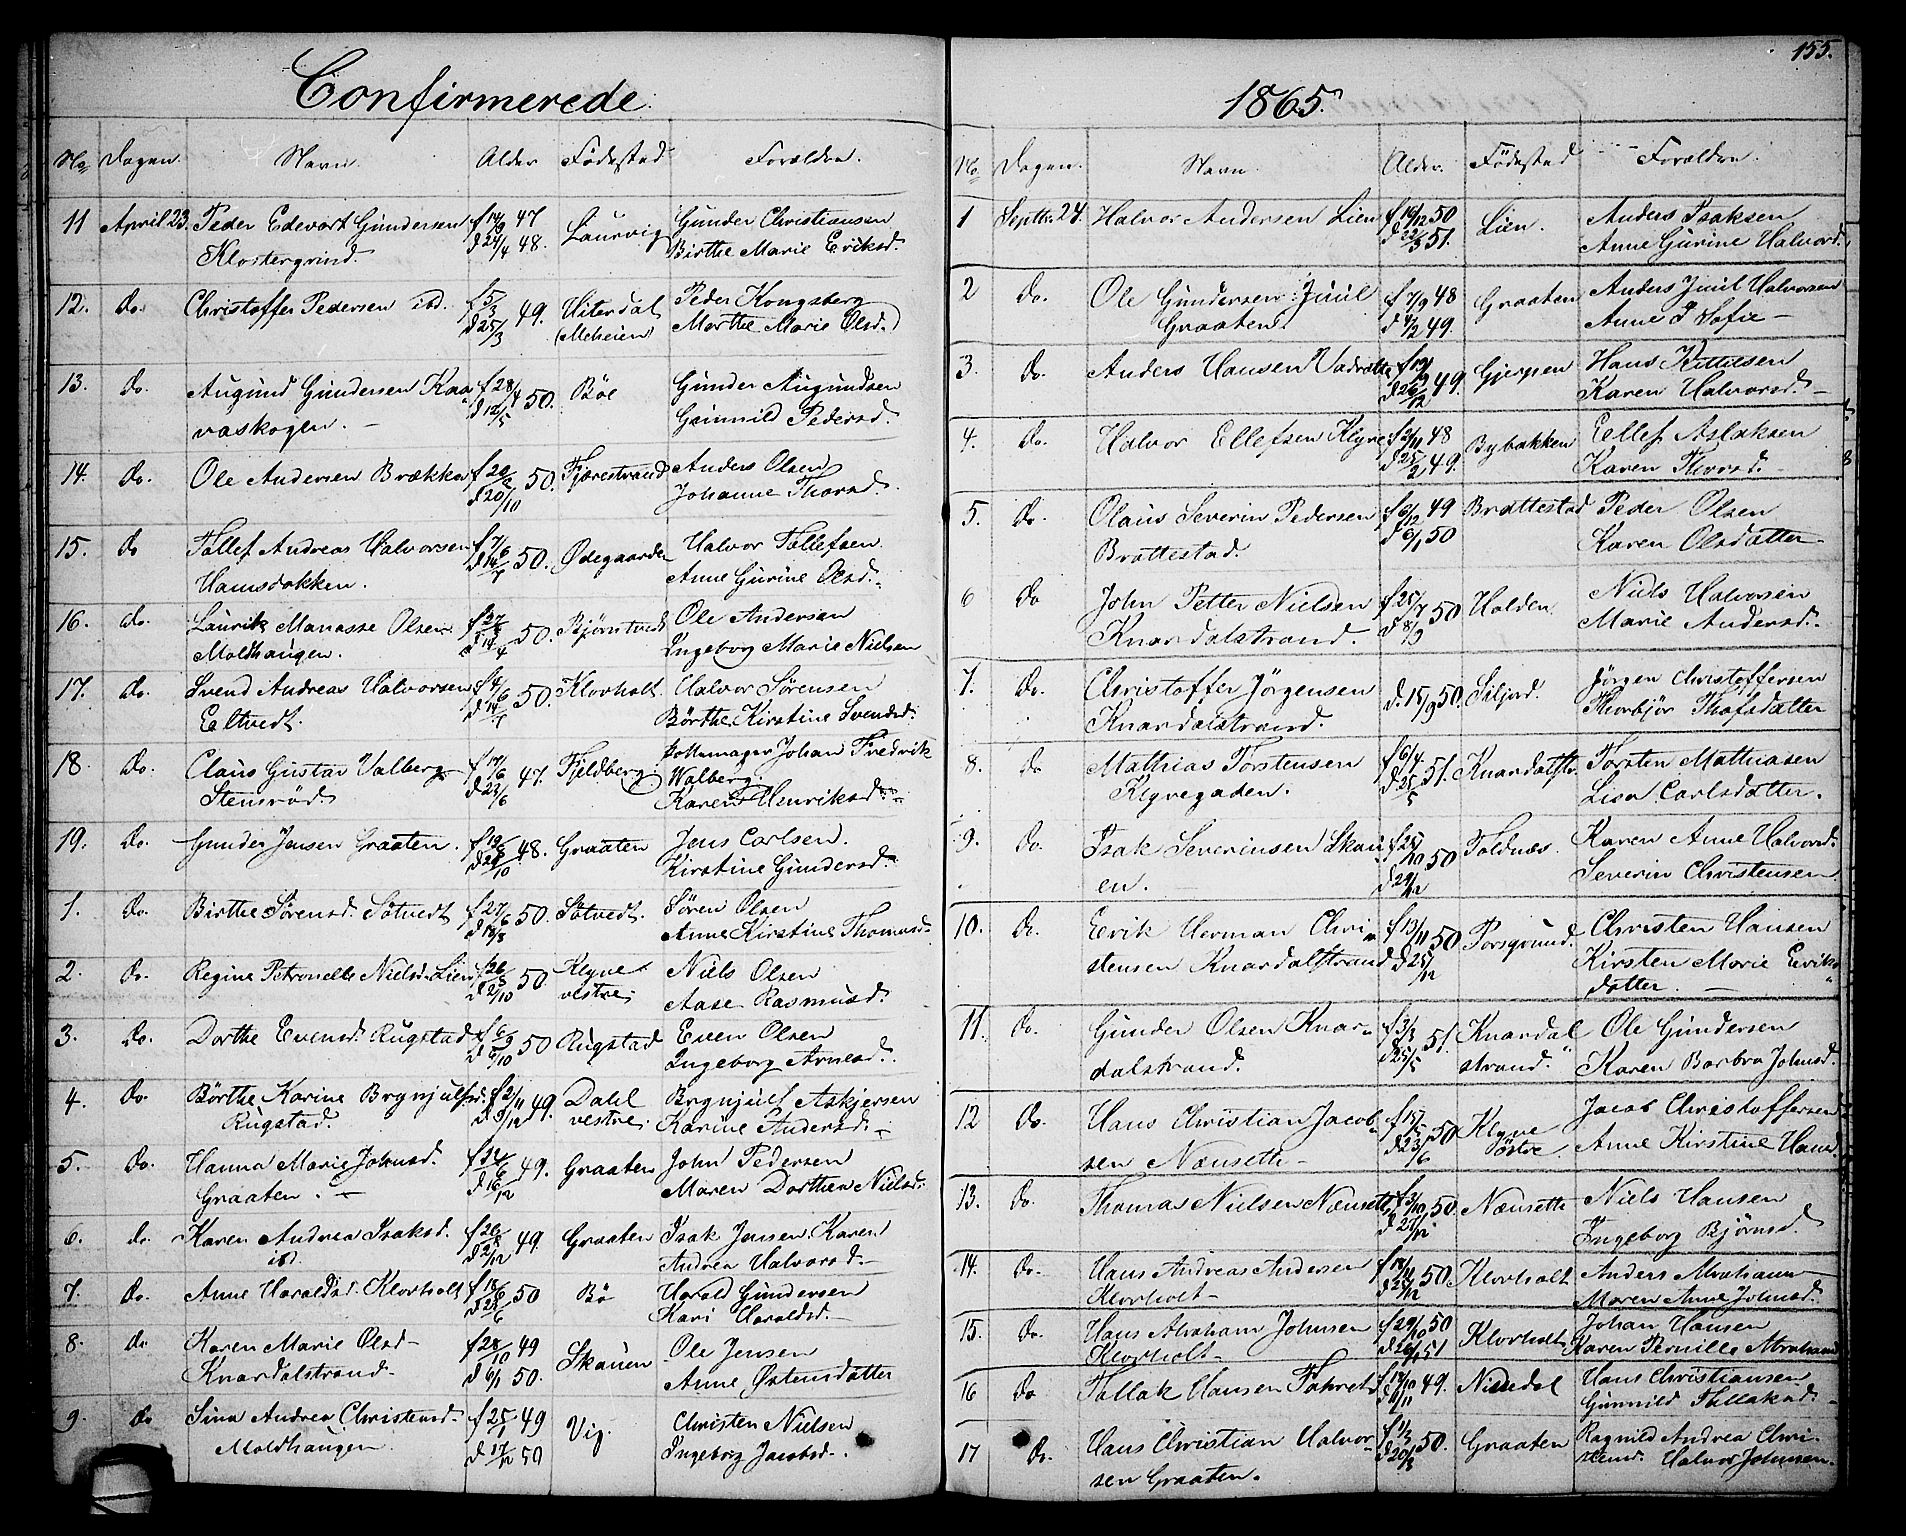 155.
Confirmerede
No Dagen. Navn. Alder Fødested Forældre.
11 April 23. Peder Edevart Gundersen f 14/9 47 Laurvig Gunder Christiansen
Klostergrind. d 24/4 48. Birthe Marie Eriksd.
12. do. Christoffer Pedersen ibd. f 5/3 49. Hiterdal Peder Kongsberg
d 25/3 (Meheien) Marthe Marie Olsd.
13. do. Augund Gundersen Kaa- f 28/4 50. Bøe Gunder Augundsen
vaskogen. d 12/5 Gunnild Pedersd.
14. do. Ole Andersen Brækka f 20/2 50. Fjærestrand Anders Olsen
d 20/10 Johanne Thorsd.
15. do Tollef Andreas Halvorsen f 7/6 50. Ødegaarden Halvor Tollefsen
Hamsdokken. d 14/7 Anne Gurine Olsd.
16. do. Laurits Manasse Olsen 50. Bjørntvedt Ole Andersen
Moldhaugen. d 14/4 Ingeborg Marie Nielsen
17. do. Svend Andreas Halvorsen f 4/6 50. Klovholt. Halvor Sørensen
Ealtvedt. d 14/7 Børthe Kirstine Svendsd.
18. do. Claus Gustav Valberg f 17/6 47. Fjeldberg Pottemager Johan Fredrik
Stensrød d 23/6 Walberg.
Karen Henriksd.
19. do. Gunder Jensen Graaten. 48. Graaten Jens Carlsen.
Kirstine Gundersd.
1. do. Birthe Sørensd. Sötvedt f 27/6 50. Sötvedt. Søren Olsen
d 18/8 Anne Kirstine Thomasd.
2. do. Regine Petronelle Nielsd. Lien 50. Klyve Niels Olsen
d 2/10 vestre Aase Rasmusd.
3. do. Dorthe Evensd. Rugstad f 6/9 50 Rugstad Even Olsen
d 6/10 Ingeborg Arnesd.
4. do. Børthe Karine Brynjulfsd. f 2/11 49. Dahl Brynjulf Askjersen
Rugstad. vestre Karine Andersd.
5. do. Hanna Marie Johnsd. 49. Graaten John Pedersen
Graaten. d 16/12 Maren Dorthea Nielsd.
6. do. Karen Andrea Isaksd. 49. Graaten Isak Jensen. Karen
ibd. d 2/12 Andrea Halvorsd.
7. do. Anne Haraldsd. Klovholt f 18/6 50 Bø Harald Gundersen
d 23/6 Kari Haraldsd.
8. do Karen Marie Olsd f 28/10 49 Skauen Ole Jensen
Knardalstrand d 6/1 50. Anne Østensdatter
9. do Sina Andrea Christensd. 49 Vig. Christen Nielsen
Moldhaugen. d 17/12 50 Ingeborg Jacobsd.
1865.
No. Dagen. Navn. Alder. Fødested Forældre.
1 Septbr. 24. Halvor Andersen Lien f 19/12 50 Lien. Anders Isaksen
d 22/3 51. Anne Gurine Halvord.
2 do. Ole Gundersen Juul f 7/9 48 Graaten Anders Juul Halvorsen
Graaten. d 4/2 49. Anne Sofie
3. do. Anders Hansen Vadrette 49. Gjerpen Hans Kittilsen
d 26/12 Karen Halvorsd.
4. do. Halvor Ellefsen Klyve f 2/11 48 Bybakken Eellef Aslaksen
d 25/2 49. Karen Thorsd.
5. do. Olaus Severin Pedersen f 6/12 49 Brattestad Peder Olsen
Brattestad. d 6/1 50 Karen Olsdatter
6 do John Petter Nielsen f 25/7 50 Holden. Niels Halvorsen
Knardalstrand. d 8/9 Marie Andersd.
7. do. Christoffer Jörgensen d. 15/9 50. Siljord. Jörgen Christoffersen
Knardalstrand. Thorbjör Thofsdatter
8. do Mathias Torstensen f 6/4 51. Knardalstr. Torsten Mathiasen
Klyvegaden. d 25/5 Lisa Carlsdatter.
9. do. Isak Severinsen Skau f 25/10 50 Toldnæs. Karen Anne Halvord.
en. d 29/12 Severin Christensen
10. do. Eerik Herman Chri f 13/11 50 Porsgrund. Christen Hansen
stensen Knardalstrand d 25/12 Kirsten Marie Eeriks
datter.
11. do. Gunder Olsen Knar- f 3/3 51. Knardal Ole Gundersen
dalstrand. d 25/5 strand. Karen Barbra Johnsd.
12 do. Hans Christian Jacob- 50 Klyve Jacob Christoffersen
sen Nænseth d 23/6 Östre Anne Kirstine Hans
13. do. Thomas Nielsen Nænseth f 3/10 50. Nænseth Niels Hansen
d 27/12 Ingeborg Bjørnsd.
14. do. Hans Andreas Andersen 50. Klovholt Anders Abraham
Klovholt Maren Anne Johnsd.
15. do. Hans Abraham Johnsen f 29/10 50 Klovholt Johan Hansen
Klovholt d 26/1 51 Karen Pernille Abrahamd
16 do Tallak Hansen Tahvet 49. Nissedal Hans Christiansen
Gunnild Tallaksd.
17 do. Hans Christian Halvor- f 1/3 50. Graaten Ragnild Andrea Chri-
sen Graaten. stensd. Halvor Johnsen.